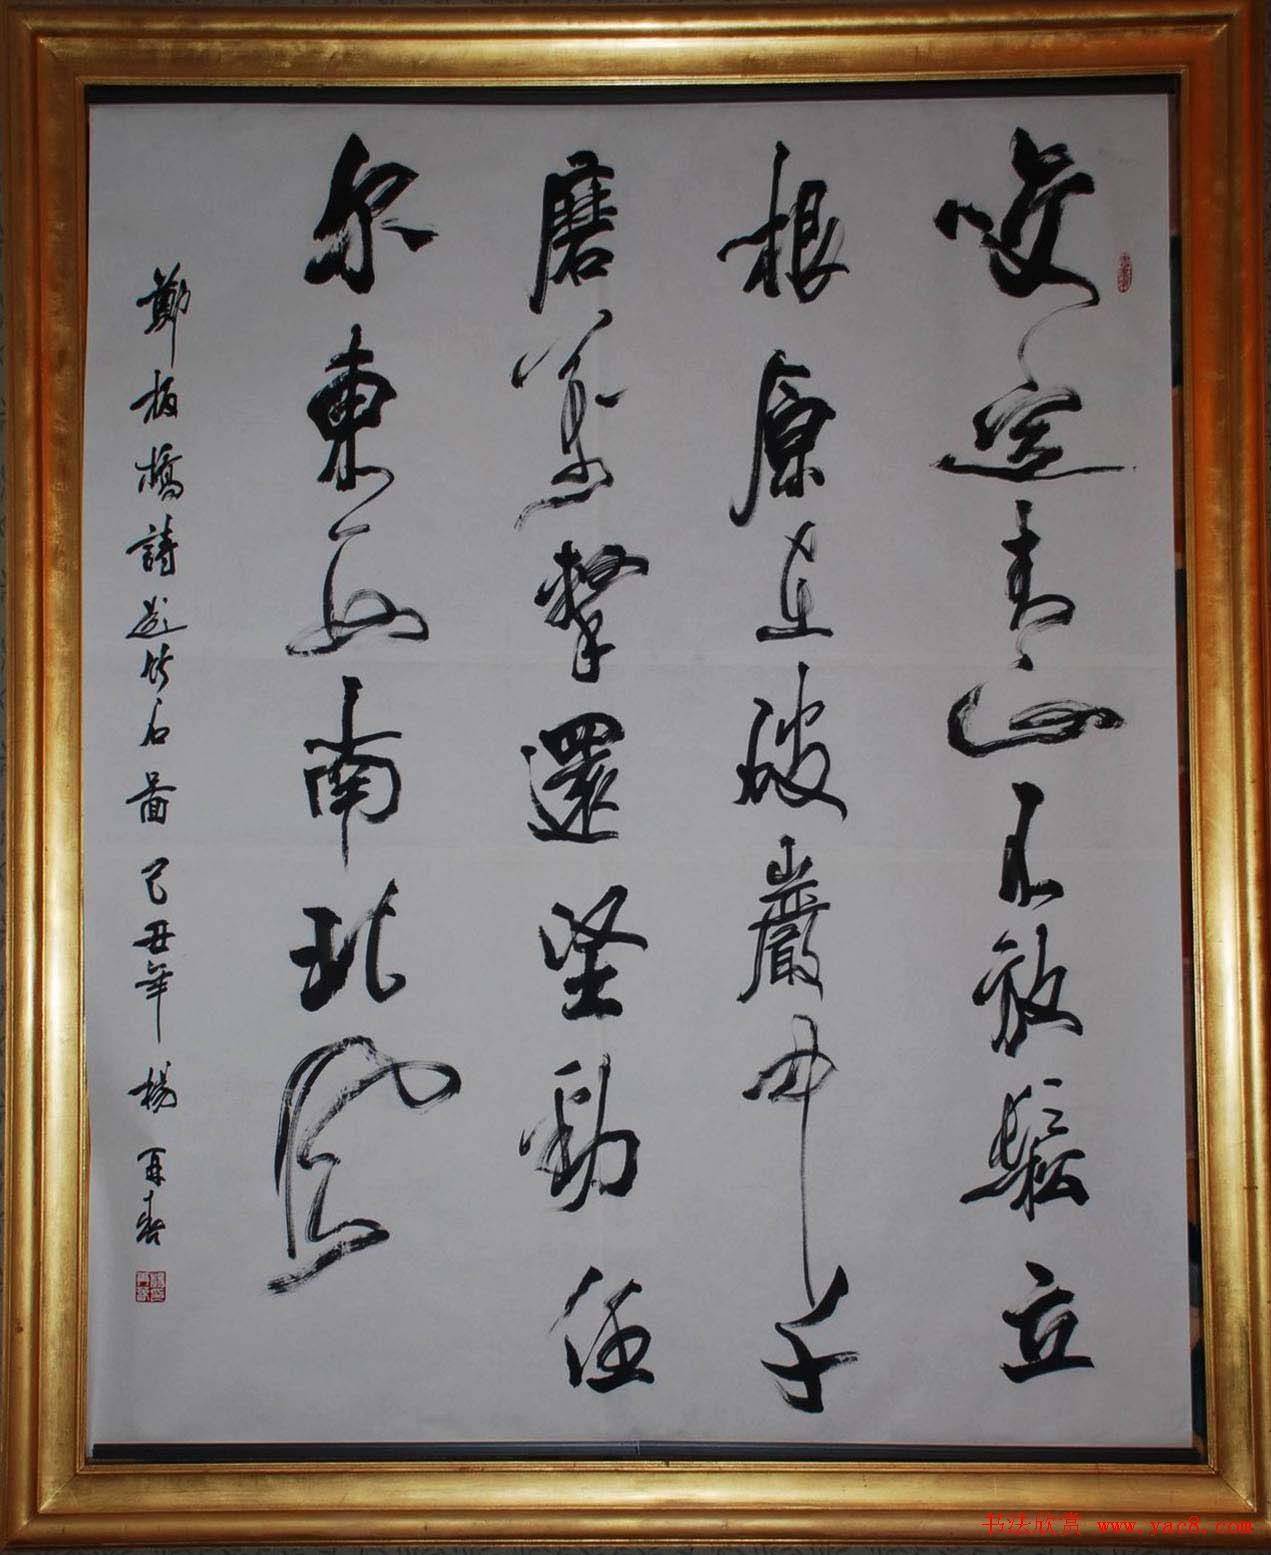 咬定青山不放鬆立
根原在破巖中千
磨萬擊還堅勁任
尔東西南北風
鄭板橋詩題竹石圖 己丑年 楊再春
书法欣赏 www.yac8.com